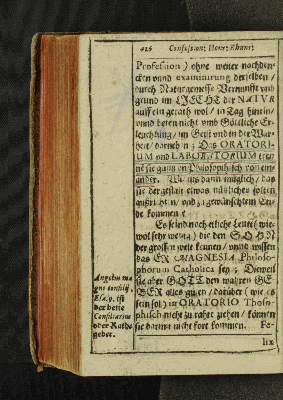 426 Confession; Henr: Khunr:
Profession) ohne weiter nachden-
cken vnnd examinirung derselben /
durch Naturgemesse Vernunfft vnd
grund im LIECHT der NATVR
auff ein gerath wol / in Tag hinein /
vnnd beten nicht vmb Göttliche Er-
leuchtung / im Geist vnd in der War-
heit / darumb
ORATORI-
UM vnd LABORATORIUM
nen sie gantz vn Philosophisch von ein-
ander. Wie ists dann müglich / das
sie dergestalt etwas nützliches solten
außrichten / vnd zu gewünschtem En-
de kommen?
Es seind noch etliche Leute (wie-
wol sehr wenig) die den SOHN
der grossen welt kennen / vnnd wissen
das MAGNESIA Philoso-
phorum Catholica sey; Dieweil
Sie aber GOTT den wahren GE-
BER alles guten / darüber (wie es
sein sol) in ORATORIO Theoso-
phisch nicht zu rahte ziehen / können
sie darinne nicht fort kommen. Fe-
lix
Angelus ma
gni consilij,
Esa. 9. ist
der beste
Consiliarius
oder Rathe
geber.